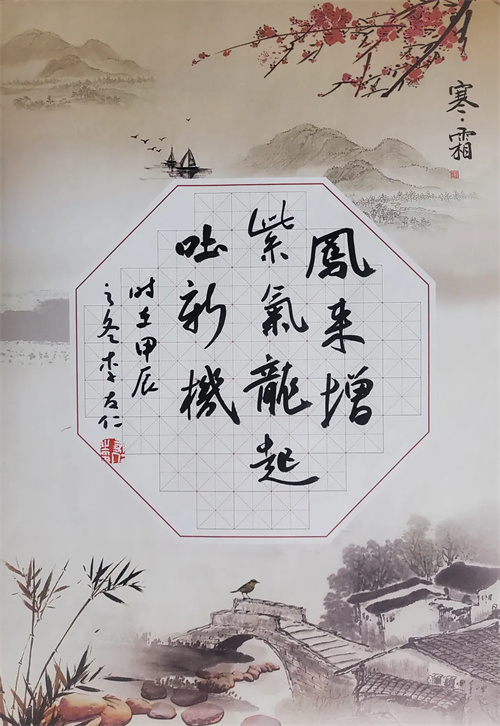 寒·霜
鳳来增
紫氣龍起
吐新機
时在甲辰
之冬李友仁